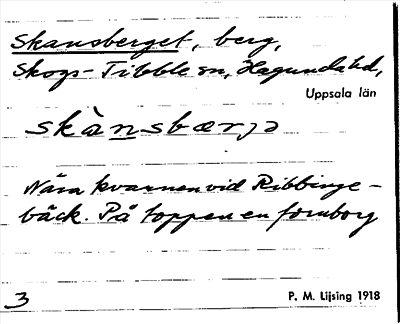 Skansberget, berg,
Skogs-Tibble sn, Hagunda hd,
Uppsala län
skànsbærjə
Nära kvarnen vid Ribbinge-
bäck. På toppen en fornborg
3
P. M. Lijsing 1918